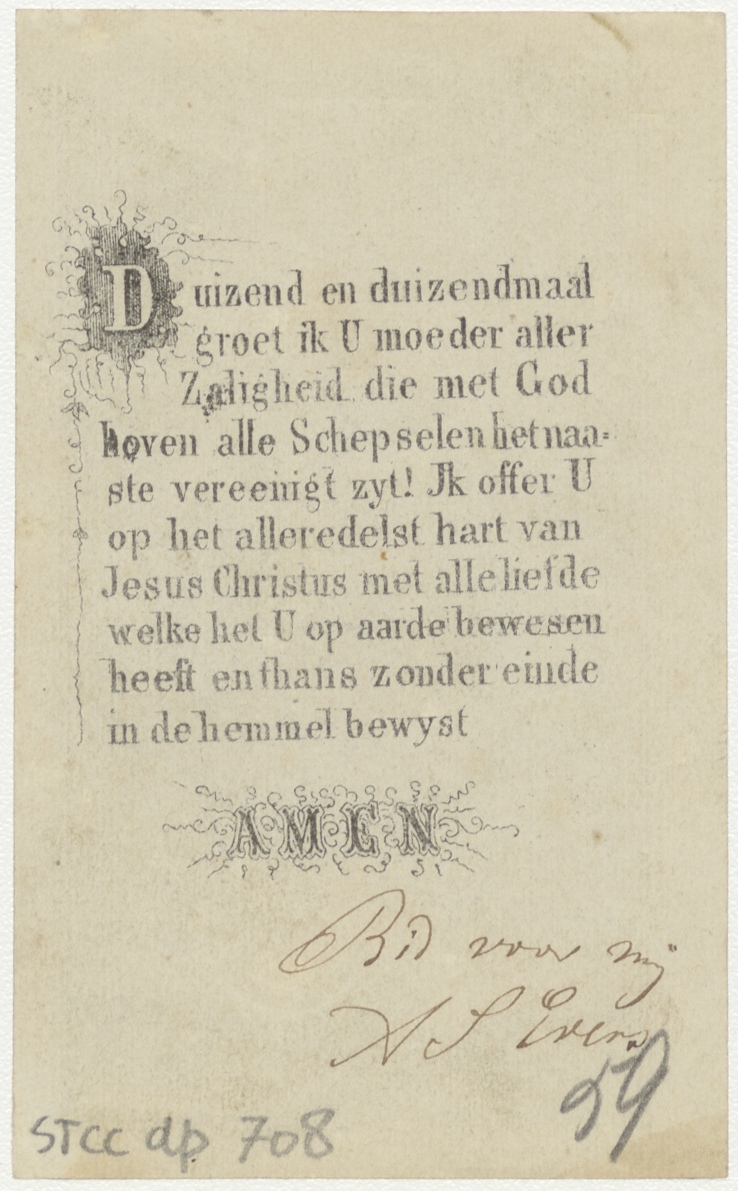 Duizend en duizendmaal
groet ik U moeder aller
Zaligheid die met God
boven alle Schepselen het naa=
ste vereenigt zyt! Jk offer U
op het alleredelst hart van
Jesus Christus met alle liefde
welke het U op aarde bewesen
heeft en thans zonder einde
in de hemmel bewyst
AMEN
Bid voor mij
A S Evers
59
STCC dp 708